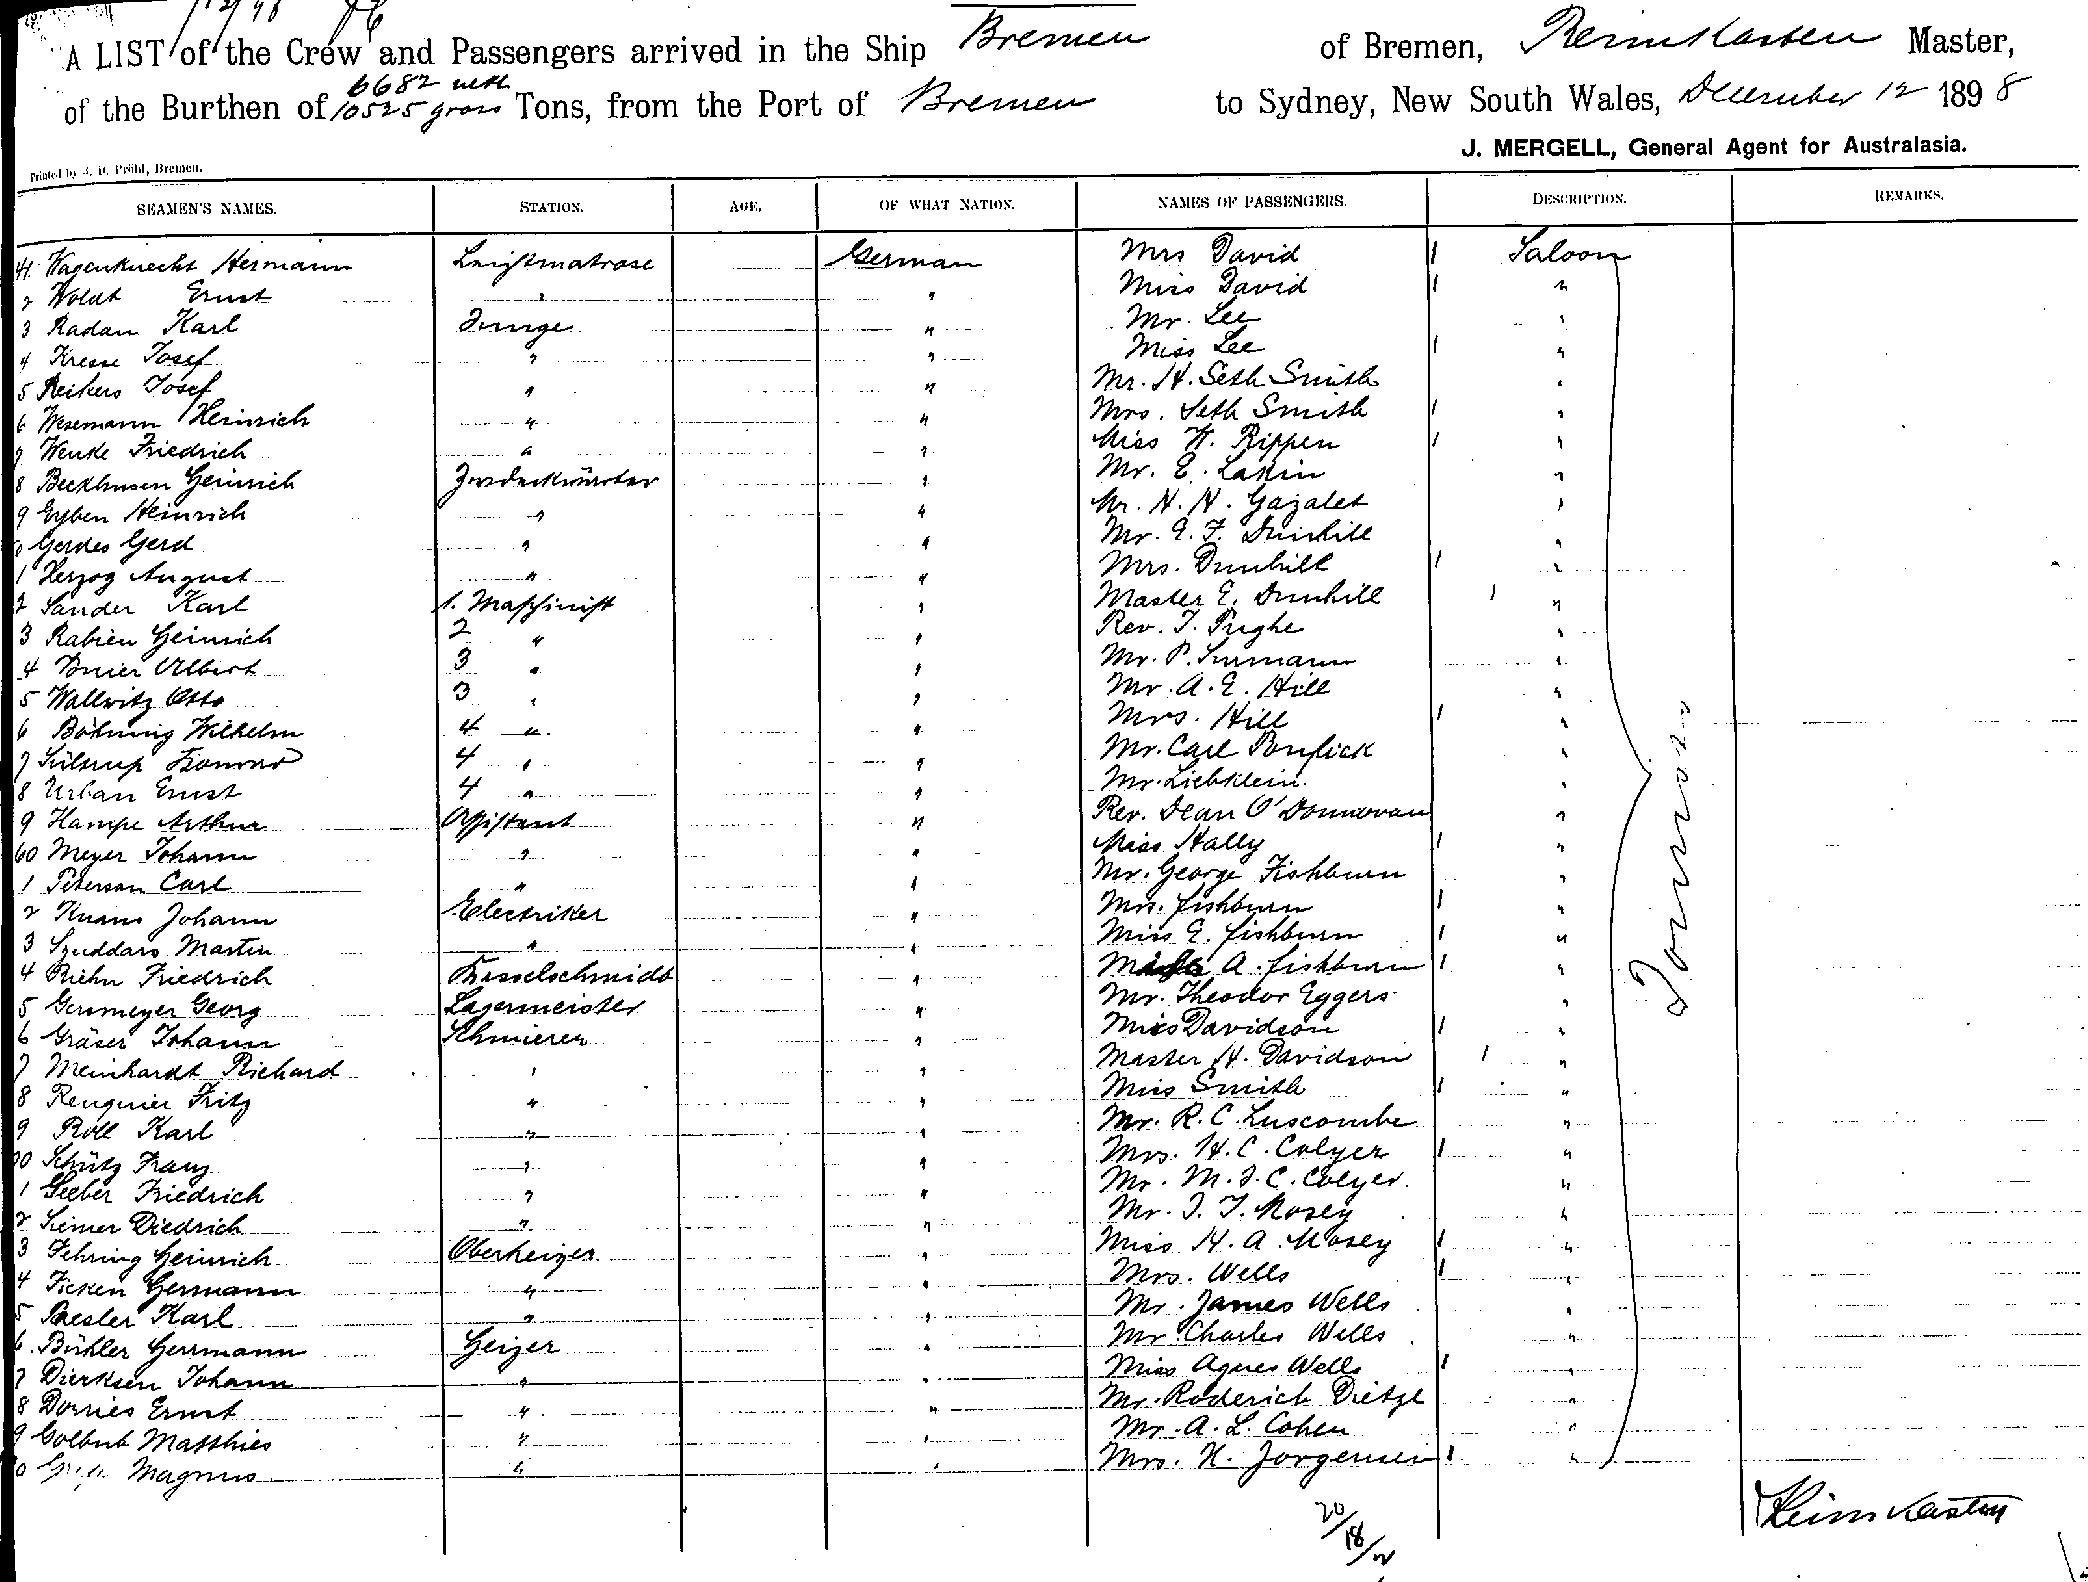 A LIST of the Crew and Passengers arrived in the Ship Bremen of Bremen, Master,
6682 nett
of the Burthen of 10525 gross Tons, from the Port of Bremen to Sydney, New South Wales, December 12 1898
J. MERGELL, General Agent for Australasia.
Printed by Bremen.
SEAMEN'S NAMES. STATION. AGE. OF WHAT NATION. NAMES OF PASSENGERS. DESCRIPTION. REMARKS.
41 Wagenknecht Hermann Leichtmatrose German Mrs David 1 Saloon
2 Woldt Ernst " " Miss David 1 "
3 Radau Karl Junge " Mr. Lee "
4 Kresse Josef " " Miss Lee 1 "
5 Reikers Josef " " Mr. H. Seth Smith "
6 Wesemann Heinrich " " Mrs. Seth Smith 1 "
7 Wenke Friedrich " " Miss Rippen 1 "
8 Heinrich " Mr. E. Lakin "
9 Eyben Heinrich " " Mr. H. Gazalet "
0 Gerdes Gerd " " Mr. E. F. Dunhill "
1 Herzog August " " Mrs. Dunhill 1 "
2 Sander Karl 1. Maschinist " Master E. Dunhill 1 "
3 Rabien Heinrich 2 " " Rev. T. Pughe "
4 Albert 3 " " Mr. P. Surmann "
5 Wallwitz Otto 3 " " Mr. A. E. Hill "
6 Böhning Wilhelm 4 " " Mrs. Hill 1 "
7 Konrad 4 " " Mr. Carl "
8 Urban Ernst 4 " " Mr. Liebklein "
9 Hampe Arthur Assistent " Rev. Dean O'Donnovan "
60 Meyer Johann " " Miss Hally 1 "
1 Peterson Carl " " Mr. George Fishburn "
2 Johann Electriker " Mrs. Fishburn 1 "
3 Martin " " Miss E. Fishburn 1 "
4 Riehn Friedrich Kesselschmidt " A. Fishburn 1 "
5 Georg Lagermeister " Mr. Theodor Eggers "
6 Gräser Johann Schmierer " Davidson 1 "
7 Meinhardt Richard " " Master H. Davidson 1 "
8 Fritz " " Miss Smith 1 "
9 Röll Karl " " Mr. R. C. Luscombe "
70 Schütz Franz " " Mrs. H. C. Colyer 1 "
1 Friedrich " " Mr. M. J. C. Colyer "
2 Diedrich " " Mr. J. T. Mosey "
3 Fehring Heinrich Oberheizer " Miss H. A. Mosey 1 "
4 Ficken Hermann " " Mrs. Wells 1 "
5 Karl " " Mr. James Wells "
6 Bühler Herrmann Heizer " Mr. Charles Wells "
7 Dierksen Johann " " Miss Agnes Wells 1 "
8 Dorries Ernst " " Mr. Roderich Dietze "
9 Matthies " " Mr. A. L. Cohen "
0 Magnus " " Mrs. Jorgensen 1 "
20/18/2